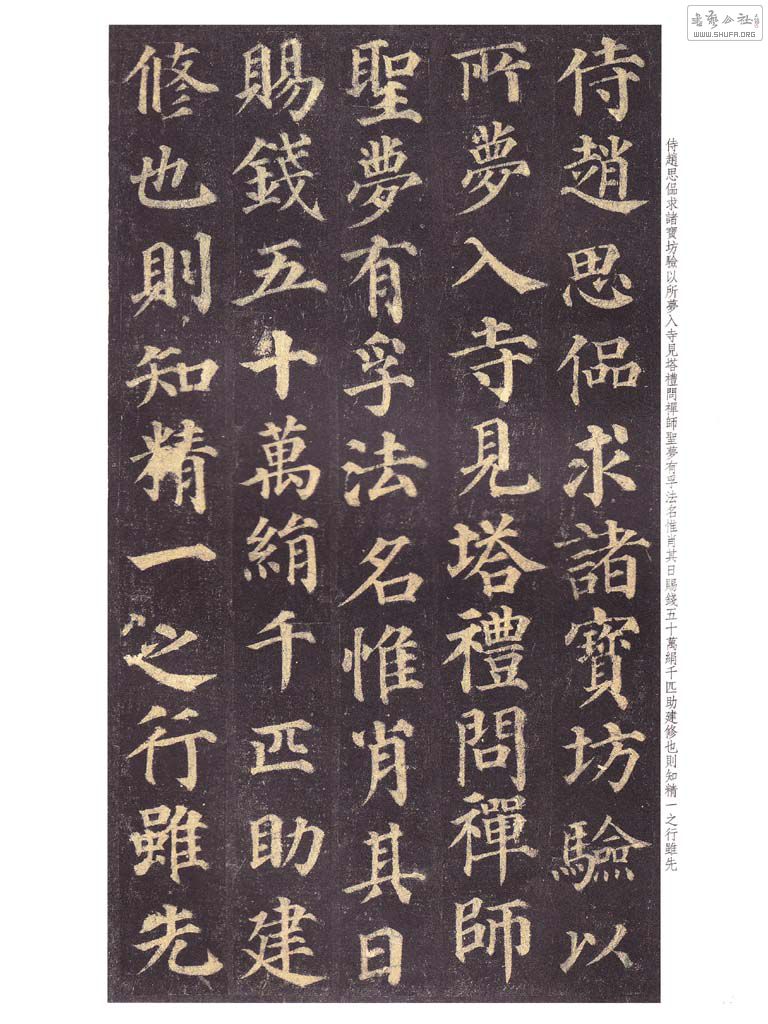 侍趙思偘求諸寶坊驗以
所夢入寺見塔禮問禪師
聖夢有孚法名惟肖其日
賜錢五十萬絹千匹助建
修也則知精一之行雖先
侍趙思偘求諸寶坊驗以所夢入寺見塔禮問禪師聖夢有孚法名惟肖其日賜錢五十萬絹千匹助建修也則知精一之行雖先
書藝公社
WWW.SHUFA.ORG